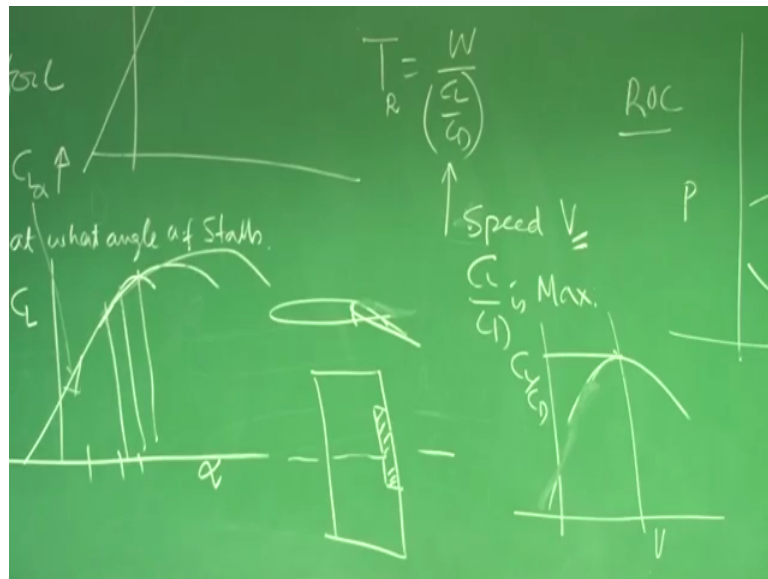 T_R = W / (C_L / C_D)
ROC
C_Lα ↑
P
at what angle of Stalls.
Speed V
C_L
C_L / C_D is Max.
C_L / C_D
α
V